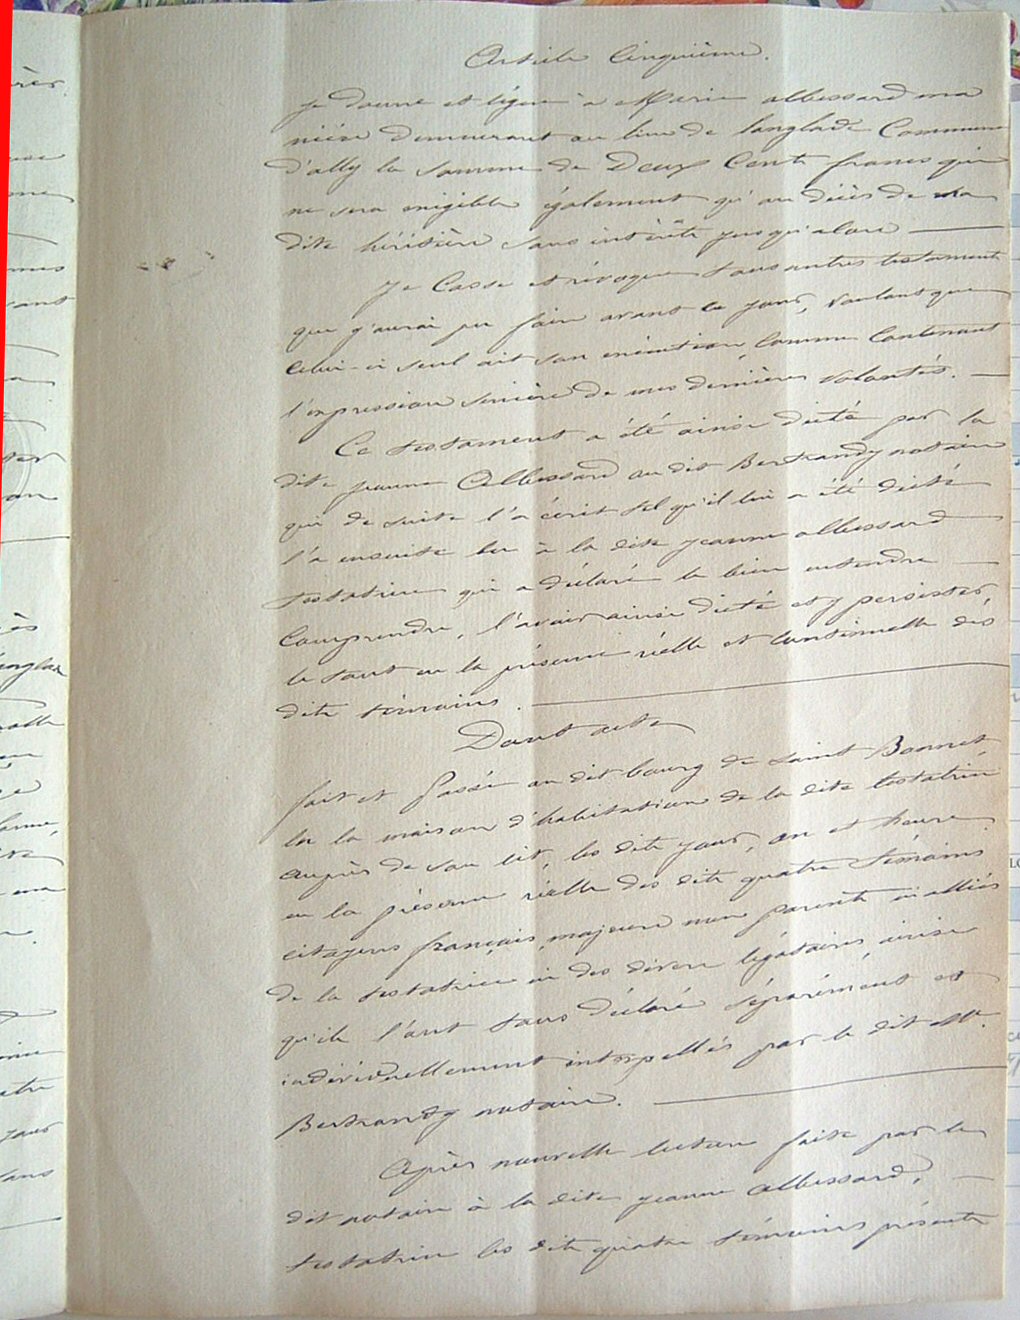 Article Cinquième.
je donne et lègue à Marie albessard ma
nièce demeurant au lieu de langlade Commune
d'ally la somme de Deux Cents francs qui
ne sera exigible également qu'au décès de ma
dite héritière sans intérêts jusqu'alors
Je Casse et révoque tous autres testaments
que j'aurai pu faire avant ce jour, voulant que
celui-ci seul ait son exécution, comme Contenant
l'expression sincère de mes dernières volontés.
Ce testament a été ainsi dicté par la
dite jeanne Albessard au dit Bertrandy notaire
qui de suite l'a écrit tel qu'il lui a été dicté
l'a ensuite lu à la dite jeanne albessard
testatrice qui a déclaré le bien entendre
Comprendre, l'avoir ainsi dicté et y persister,
le tout en la présence réelle et continuelle des
dits témoins.
Dont acte
fait et Passé au dit bourg de Saint Bonnet
en la maison d'habitation de la dite testatrice
auprès de son lit, les dits jour, an et heure
en la présence réelle des dits quatre témoins
citoyens français, majeurs non parents ni alliés
de la testatrice ni des divers légataires ainsi
qu'ils l'ont tous déclaré séparément et
individuellement interpellés par le dit Me.
Bertrandy notaire.
Après nouvelle lecture faite par le
dit notaire à la dite jeanne albessard,
testatrice les dits quatre témoins présents